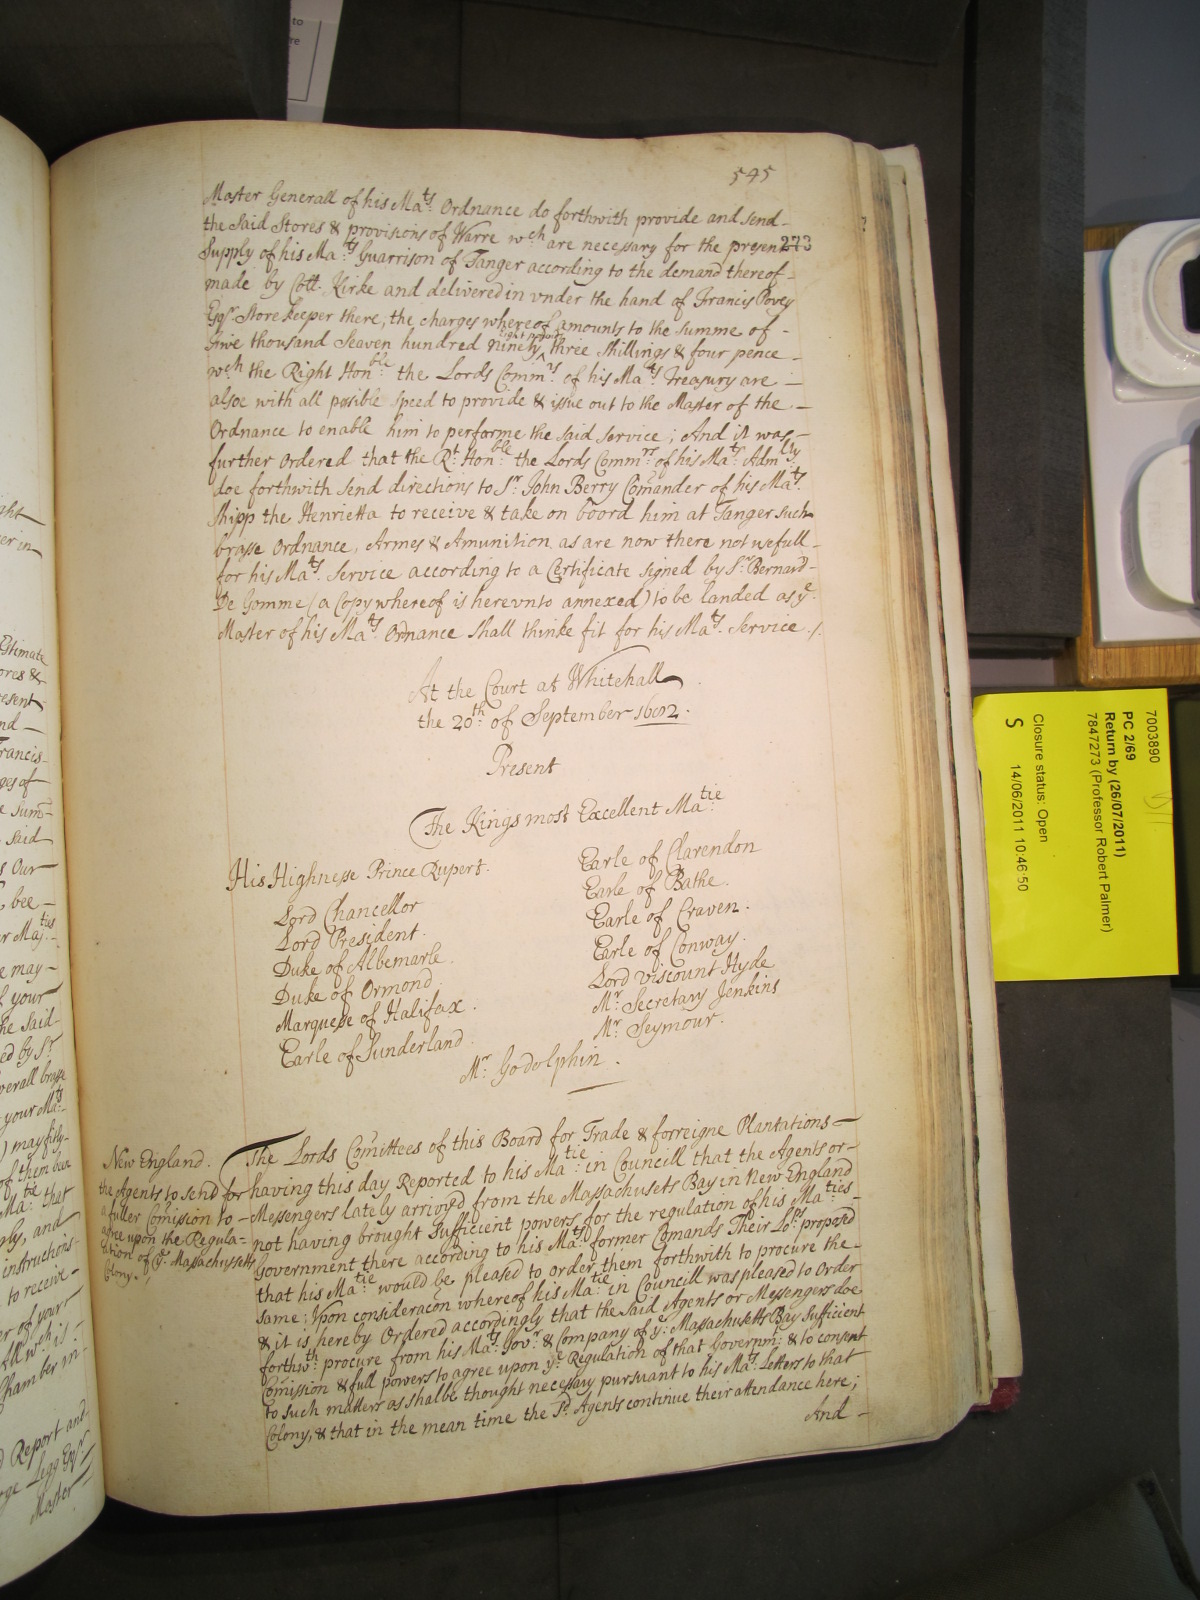 545
Master Generall of his Ma:ts Ordnance do forthwith provide and send-
the said Stores & provisions of Warre wch are necessary for the present
273
Supply of his Ma:ts Guarrison of Tanger according to the demand thereof-
made by Coll. Kirke and delivered in vnder the hand of Francis Povey
Esqr. Storekeeper there, the charges whereof amounts to the summe of -
five thousand Seaven hundred ninety eight pounds three shillings & four pence -
wch the Right Honble: the Lords Commrs: of his Ma:ts Treasury are -
alsoe with all posible speed to provide & issue out to the Master of the -
Ordnance to enable him to performe the said service; And it was -
further Ordered that the Rt: Honble: the Lords Commrs: of his Ma:ts Admlty
doe forthwith send directions to Sr. John Berry Comander of his Ma:ts
shipp the Henrietta to receive & take on boord him at Tanger such
brasse Ordnance, Armes & Amunition as are now there not usefull-
for his Ma:ts Service according to a Certificate signed by Sr. Bernard-
De Gomme (a Copy whereof is herevnto annexed) to be landed as ye:
Master of his Ma:ts Ordnance shall thinke fit for his Ma:ts Service ./.
At the Court at Whitehall
the 20th: of September 1682.
Present
The Kings most Excellent Ma:tie
His Highnesse Prince Rupert.
Lord Chancellor
Lord President.
Duke of Albemarle.
Duke of Ormond
Marquese of Halifax.
Earle of Sunderland.
Earle of Clarendon
Earle of Bathe.
Earle of Craven.
Earle of Conway.
Lord viscount Hyde
Mr. Secretary Jenkins
Mr. Seymour.
Mr. Godolphin.
New England.
the Agents to send for
a fuller Comission to -
agree upon the Regula=
ation of ye: Massachusetts
Colony./
The Lords Comittees of this Board for Trade & forreigne Plantations-
having this day Reported to his Ma:tie in Councill that the Agents or-
Messengers lately arrived from the Massachusets Bay in New England
not having brought sufficient powers for the regulation of his Ma:ties
Government there according to his Ma:ts former Comands Their Lo:ps proposed
that his Ma:tie would be pleased to order them forthwith to procure the-
same; Vpon consideracon whereof his Ma:tie in Councill was pleased to Order
& it is hereby Ordered accordingly that the said Agents or Messengers doe
forthwth: procure from his Ma:ts Govr: & Company of ye: Massachusetts Bay sufficient
Comission & full powers to agree upon ye: Regulation of that Governmt: & to consent
to such matters as shalbe thought necessary pursuant to his Ma:ts Letters to that
Colony, & that in the mean time the sd. Agents continue their attendance here;
And -
7003890
PC 2/69
Return by (26/07/2011)
7847273 (Professor Robert Palmer)
Closure status: Open
S
14/06/2011 10:46:50